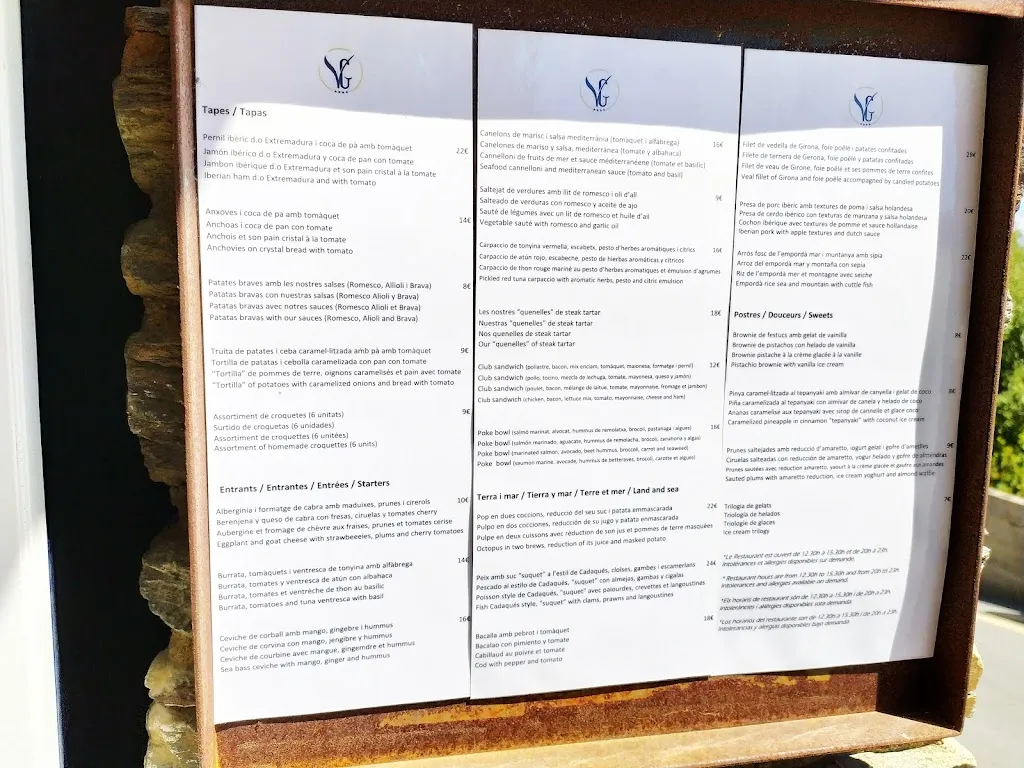 VG
Tapes / Tapas
Pernil ibèric d.o Extremadura i coca de pà amb tomàquet
22€
Jamón ibérico d.o Extremadura y coca de pan con tomate
Jambon ibérique d.o Extremadura et son pain cristal à la tomate
Iberian ham d.o Extremadura and with tomato
Anxoves i coca de pa amb tomàquet
14€
Anchoas i coca de pan con tomate
Anchois et son pain cristal à la tomate
Anchovies on crystal bread with tomato
Patates braves amb les nostres salses (Romesco, Allioli i Brava)
8€
Patatas bravas con nuestras salsas (Romesco Alioli y Brava)
Patatas bravas avec notres sauces (Romesco, Alioli et Brava)
Patatas bravas with our sauces (Romesco, Alioli and Brava)
Truita de patates i ceba caramel·litzada amb pà amb tomàquet
9€
Tortilla de patatas i cebolla caramelizada con pan con tomate
"Tortilla" de pommes de terre, oignons caramélisés et pain avec tomate
"Tortilla" of potatoes with caramelized onions and bread with tomato
Assortiment de croquetes (6 unitats)
9€
Surtido de croquetas (6 unidades)
Assortiment de croquettes (6 unitées)
Assortment of homemade croquettes (6 units)
Entrants / Entrantes / Entrées / Starters
Alberginia i formatge de cabra amb maduixes, prunes i cirerols
10€
Berenjena y queso de cabra con fresas, ciruelas y tomates cherry
Aubergine et fromage de chèvre aux fraises, prunes et tomates cerise
Eggplant and goat cheese with strawbeeeies, plums and cherry tomatoes
Burrata, tomàquets i ventresca de tonyina amb alfàbrega
14€
Burrata, tomates y ventresca de atún con albahaca
Burrata, tomates et ventrèche de thon au basilic
Burrata, tomatoes and tuna ventresca with basil
Ceviche de corball amb mango, gingebre i hummus
16€
Ceviche de corvina con mango, jengibre y hummus
Ceviche de courbine avec mangue, gingemdre et hummus
Sea bass ceviche with mango, ginger and hummus
VG
Canelons de marisc i salsa mediterrània (tomàquet i alfàbrega)
16€
Canelones de marisco y salsa, mediterránea (tomate y albahaca)
Cannelloni de fruits de mer et sauce méditerranéene (tomate et basilic)
Seafood cannelloni and mediterranean sauce (tomato and basil)
Saltejat de verdures amb llit de romesco i oli d'all
9€
Salteado de verduras con romesco y aceite de ajo
Sauté de légumes avec un lit de romesco et huile d'ail
Vegetable sauté with romesco and garlic oil
Carpaccio de tonyina vermella, escabetx, pesto d'herbes aromàtiques i citrics
16€
Carpaccio de atún rojo, escabeche, pesto de hierbas aromáticas y cítricos
Carpaccio de thon rouge mariné au pesto d'herbes aromatiques et émulsion d'agrumes
Pickled red tuna carpaccio with aromatic herbs, pesto and citric emulsion
Les nostres "quenelles" de steak tartar
18€
Nuestras "quenelles" de steak tartar
Nos quenelles de steak tartar
Our "quenelles" of steak tartar
Club sandwich (pollastre, bacon, mix enciam, tomàquet, maionesa, formatge i pernil)
12€
Club sandwich (pollo, tocino, mezcla de lechuga, tomate, mayonesa, queso y jamón)
Club sandwich (poulet, bacon, mélange de laitue, tomate, mayonnaise, fromage et jambon)
Club sandwich (chicken, bacon, lettuce mix, tomato, mayonnaise, cheese and ham)
Poke bowl (salmó marinat, alvocat, hummus de remolatxa, bròcoli, pastanaga i algues)
16€
Poke bowl (salmón marinado, aguacate, hummus de remolacha, brócoli, zanahoria y algas)
Poke bowl (marinated salmon, avocado, beet hummus, broccoli, carrot and seaweed)
Poke bowl (saumon mariné, avocade, hummus de betteraves, brocoli, carotte et algues)
Terra i mar / Tierra y mar / Terre et mer / Land and sea
Pop en dues coccions, reducció del seu suc i patata emmascarada
22€
Pulpo en dos cocciones, reducción de su jugo y patata enmascarada
Pulpe en deux cuissons avec réduction de son jus et pommes de terre masquées
Octopus in two brews, reduction of its juice and masked potato
Peix amb suc "suquet" a l'estil de Cadaqués, cloïses, gambes i escamerlans
24€
Pescado al estilo de Cadaqués, "suquet" con almejas, gambas y cigalas
Poisson style de Cadaqués, "suquet" avec palourdes, crevettes et langoustines
Fish Cadaqués style, "suquet" with clams, prawns and langoustines
Bacalla amb pebrot i tomàquet
18€
Bacalao con pimiento y tomate
Cabillaud au poivre et tomate
Cod with pepper and tomato
VG
Filet de vedella de Girona, foie poêlé y patatas confitades
26€
Filete de ternera de Girona, foie poêlé y patatas confitadas
Filet de veau de Girone, foie poêlé et ses pommes de terre confites
Veal fillet of Girona and, foie poêlé accompagned by candied potatoes
Presa de porc ibèric amb textures de poma i salsa holandesa
20€
Presa de cerdo ibérico con texturas de manzana y salsa holandesa
Cochon ibérique avec textures de pomme et sauce hollandaise
Iberian pork with apple textures and dutch sauce
Arròs fosc de l'empordà mar i muntanya amb sípia
22€
Arroz del empordà mar y montaña con sepia
Riz de l'empordà mer et montagne avec seiche
Empordà rice sea and mountain with cuttle fish
Postres / Douceurs / Sweets
Brownie de festucs amb gelat de vainilla
8€
Brownie de pistachos con helado de vainilla
Brownie pistache à la crème glacée à la vanille
Pistachio brownie with vanilla ice cream
Pinya caramelitzada al tepanyaki amb almívar de canyella i gelat de coco
8€
Piña caramelizada al tepanyaki con almívar de canela y helado de coco
Ananas caramelisé aux tepanyaki avec sirop de cannelle et glace coco
Caramelized pineapple in cinnamon "tepanyaki" with coconut ice cream
Prunes saltejades amb reducció d'amaretto, iogurt gelat i gofre d'ametlles
9€
Ciruelas salteadas con reducción de amaretto, yogur helado y gofre de almendras
Prunes sautées avec réduction amaretto, yaourt à la crème glacée et gaufre aux amandes
Sauted plums with amaretto reduction, ice cream yoghurt and almond waffle
Trilogia de gelats
7€
Triología de helados
Triologie de glaces
Ice cream trilogy
*Le Restaurant est ouvert de 12.30h à 15.30h et de 20h à 23h.
Intolérances et allergies disponibles sur demande.
* Restaurant hours are from 12.30h to 15.30h and from 20h to 23h.
Intolerances and allergies available on demand.
*Els horaris de restaurant són de 12.30h a 15.30h i de 20h a 23h.
Intoleràncies i al·lèrgies disponibles sota demanda.
*Los horarios del restaurante son de 12.30h a 15.30h y de 20h a 23h.
Intolerancias y alergias disponibles bajo demanda